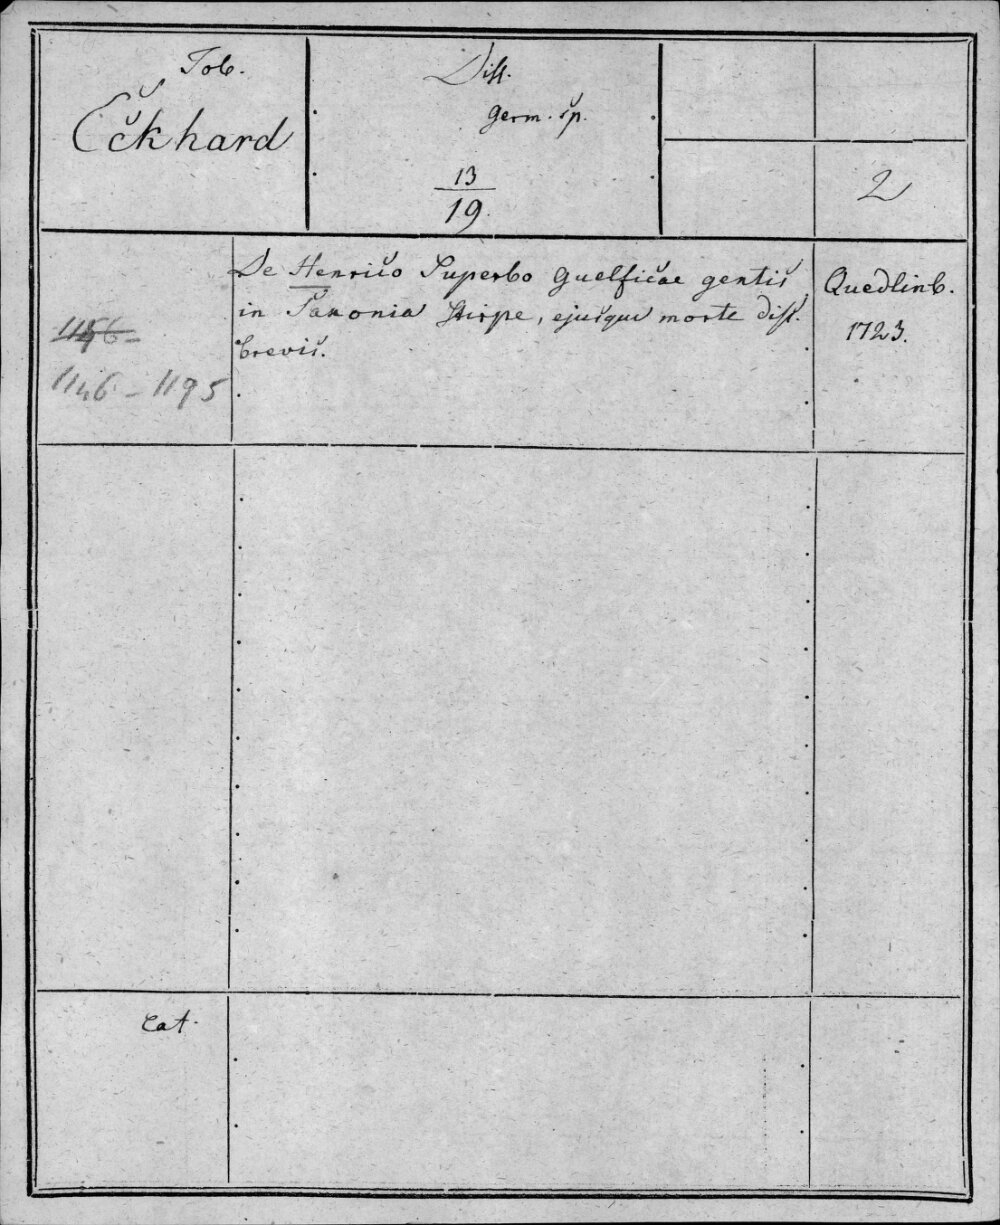 Tob.
Eckhard
Diss.
germ. sp.
13
19.
2
De Henrico Superbo Guelficae gentis
in Saxonia stirpe, ejusque morte diss.
brevis.
Quedlinb.
1723.
1146 - 1195
Cat.